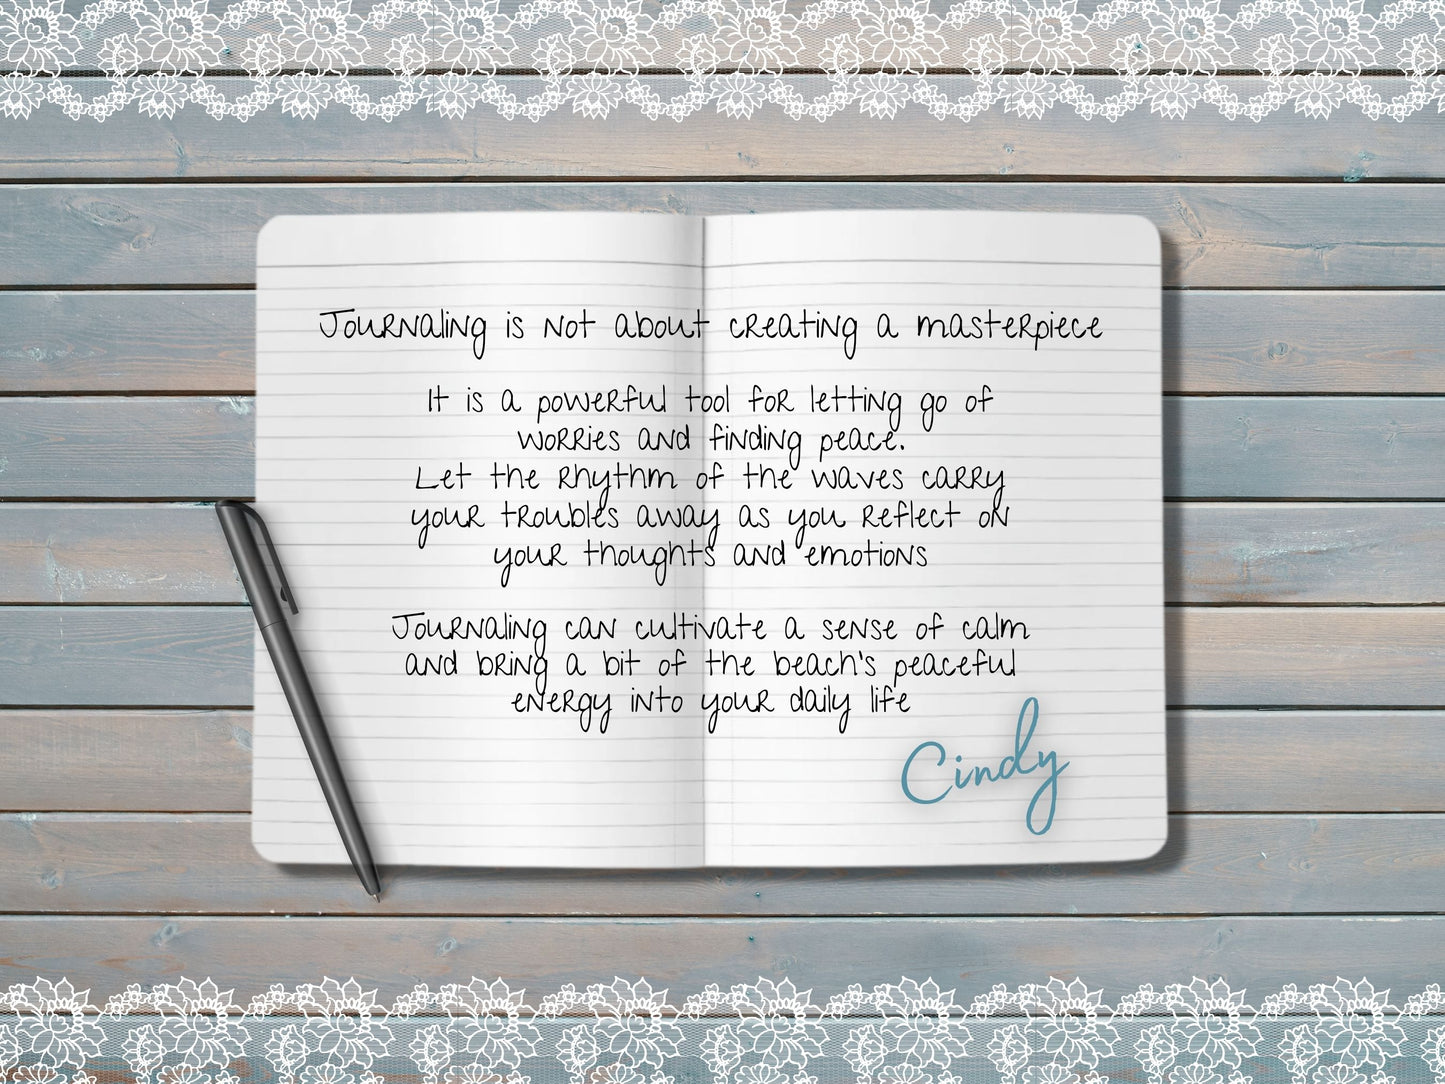 Journaling is not about creating a masterpiece
It is a powerful tool for letting go of
worries and finding peace.
Let the rhythm of the waves carry
your troubles away as you reflect on
your thoughts and emotions
Journaling can cultivate a sense of calm
and bring a bit of the beach's peaceful
energy into your daily life
Cindy